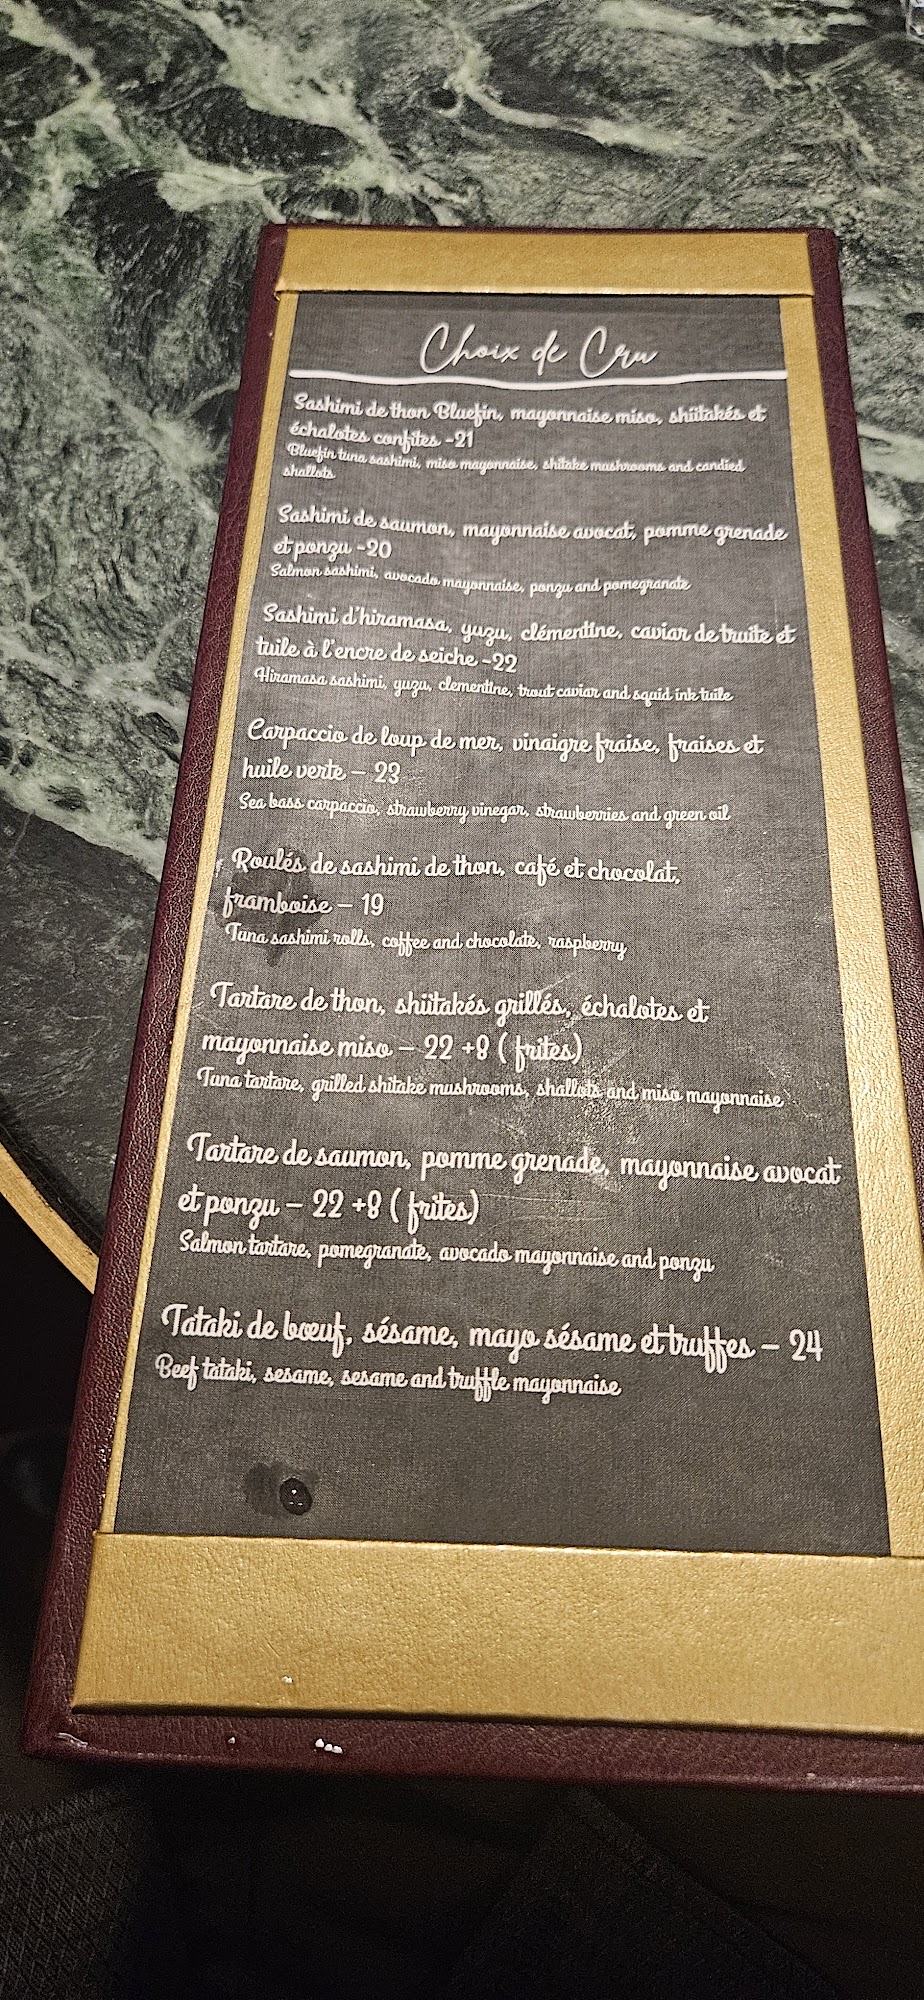 Choix de Cru
Sashimi de thon Bluefin, mayonnaise miso, shiitakés et
échalotes confites -21
Bluefin tuna sashimi, miso mayonnaise, shitake mushrooms and candied
shallots
Sashimi de saumon, mayonnaise avocat, pomme grenade
et ponzu -20
Salmon sashimi, avocado mayonnaise, ponzu and pomegranate
Sashimi d'hiramasa, yuzu, clémentine, caviar de truite et
tuile à l'encre de seiche -22
Hiramasa sashimi, yuzu, clementine, trout caviar and squid ink tuile
Carpaccio de loup de mer, vinaigre fraise, fraises et
huile verte – 23
Sea bass carpaccio, strawberry vinegar, strawberries and green oil
Roulés de sashimi de thon, café et chocolat,
framboise – 19
Tuna sashimi rolls, coffee and chocolate, raspberry
Tartare de thon, shiitakés grillés, échalotes et
mayonnaise miso – 22 +8 ( frites)
Tuna tartare, grilled shitake mushrooms, shallots and miso mayonnaise
Tartare de saumon, pomme grenade, mayonnaise avocat
et ponzu – 22 +8 ( frites)
Salmon tartare, pomegranate, avocado mayonnaise and ponzu
Tataki de bœuf, sésame, mayo sésame et truffes – 24
Beef tataki, sesame, sesame and truffle mayonnaise